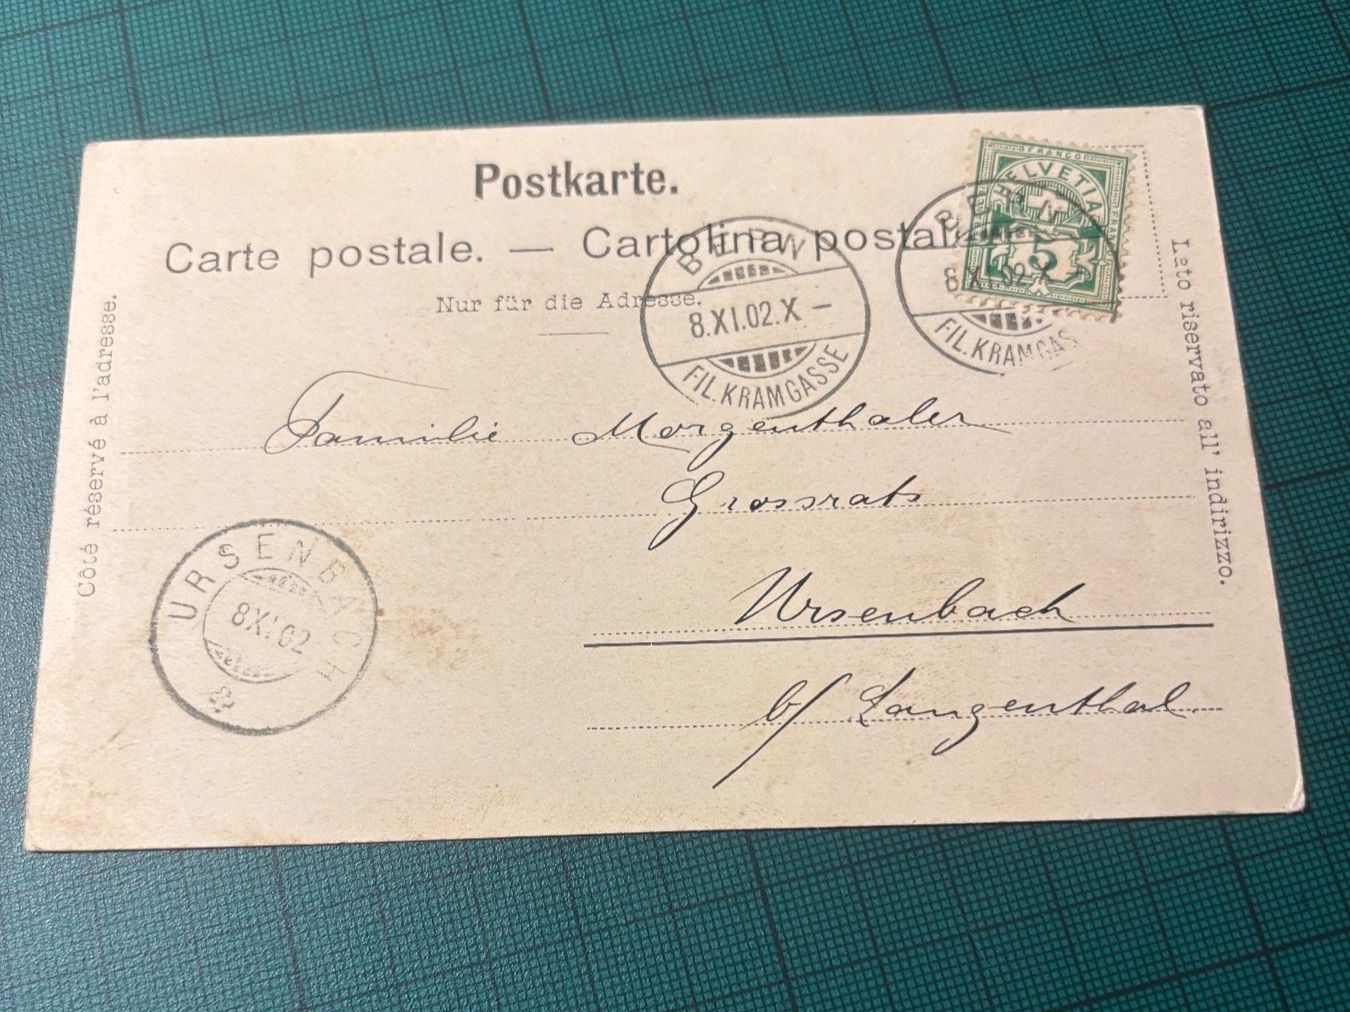 Postkarte.
Carte postale. — Cartolina postal
Nur für die Adresse.
Côté réservé à l'adresse.
Lato riservato all' indirizzo.
FRANCO
HELVETIA
5
BERN
8.XI.02.X –
FIL.KRAMGASSE
BERN
8.XI.02.X
FIL.KRAMGAS
Familie Morgenthaler
Grossrats
Ursenbach
b/ Langenthal.
URSENBACH
8.XI.02